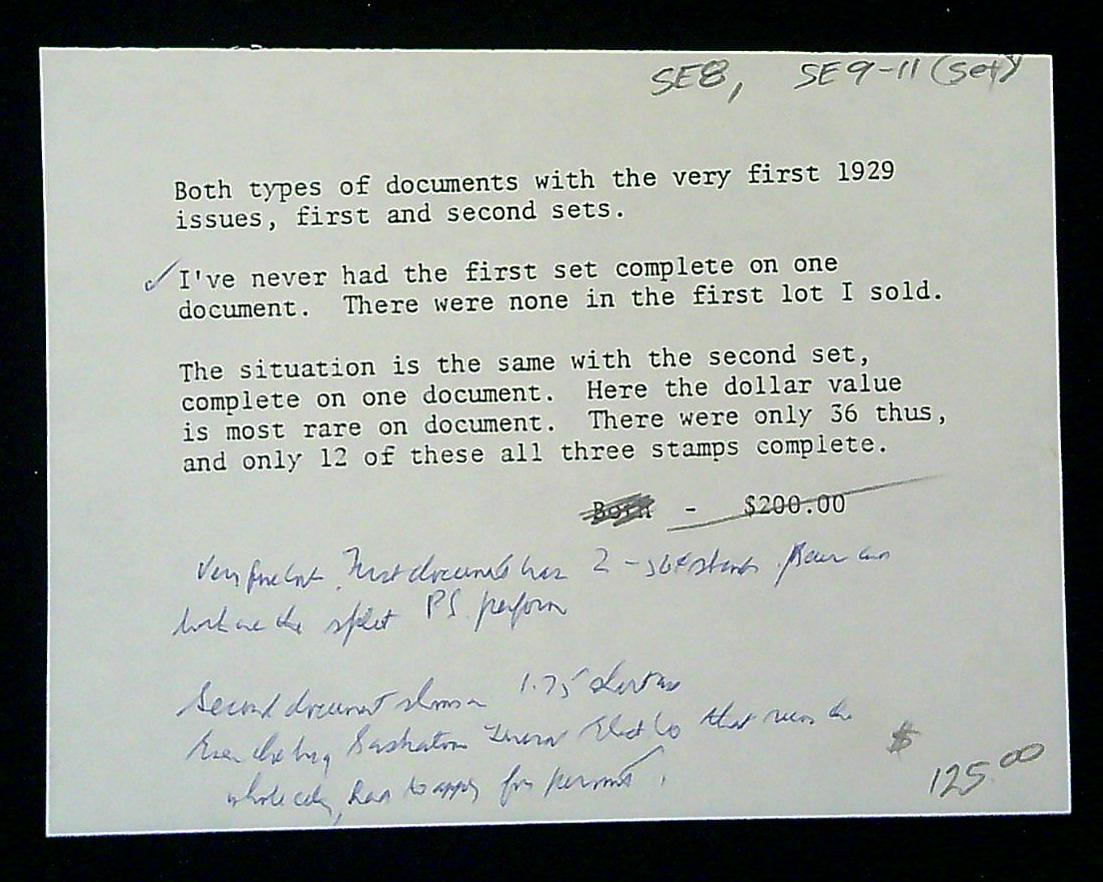 SE8, SE9-11 (set)
Both types of documents with the very first 1929
issues, first and second sets.
I've never had the first set complete on one
document. There were none in the first lot I sold.
The situation is the same with the second set,
complete on one document. Here the dollar value
is most rare on document. There were only 36 thus,
and only 12 of these all three stamps complete.
Both - $200.00
Very fine lot. First document has 2 -
the split PS. perform
Second document shows 1.75
Saskatoon that runs the
whole city, had to apply for permit.
$
125.00